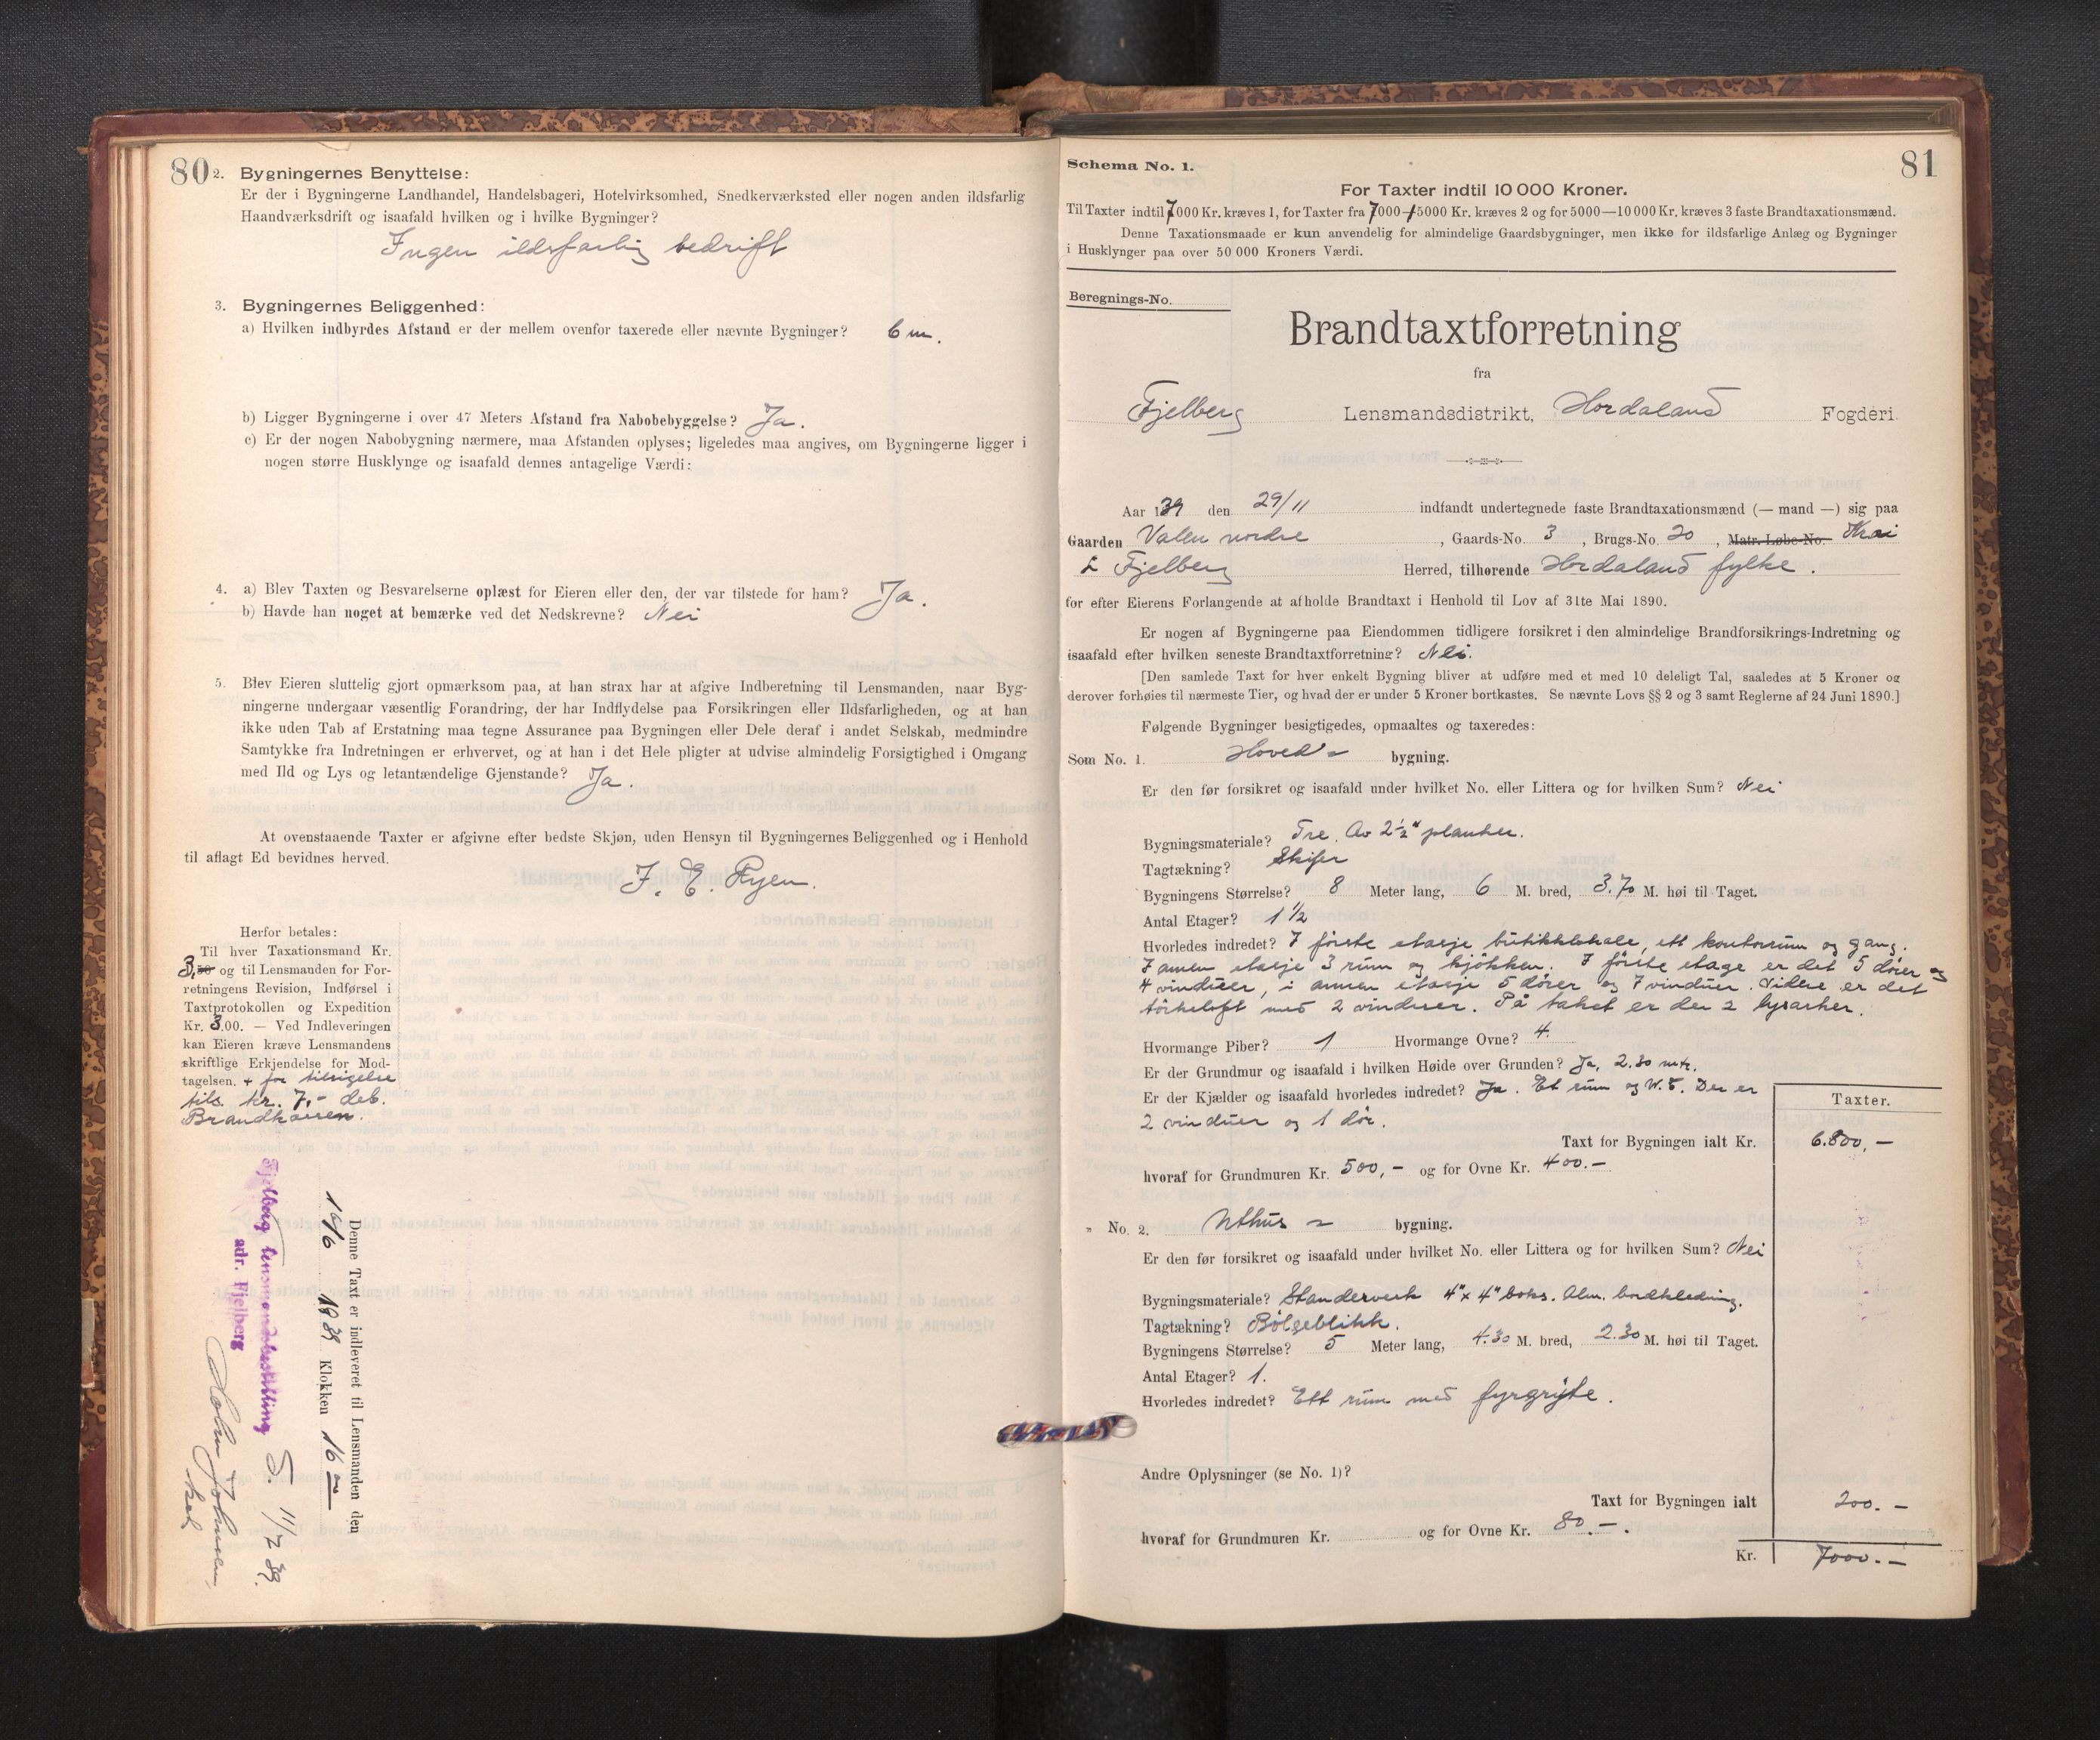 80
2. Bygningernes Benyttelse:
Er der i Bygningerne Landhandel, Handelsbageri, Hotelvirksomhed, Snedkerværksted eller nogen anden ildsfarlig
Haandværksdrift og isaafald hvilken og i hvilke Bygninger?
Ingen ildsfarlig bedrift
3. Bygningernes Beliggenhed:
a) Hvilken indbyrdes Afstand er der mellem ovenfor taxerede eller nævnte Bygninger? 6 m.
b) Ligger Bygningerne i over 47 Meters Afstand fra Nabobebyggelse? Ja.
c) Er der nogen Nabobygning nærmere, maa Afstanden oplyses; ligeledes maa angives, om Bygningerne ligger i
nogen større Husklynge og isaafald dennes antagelige Værdi:
4. a) Blev Taxten og Besvarelserne oplæst for Eieren eller den, der var tilstede for ham? Ja.
b) Havde han noget at bemærke ved det Nedskrevne? Nei
5. Blev Eieren sluttelig gjort opmærksom paa, at han strax har at afgive Indberetning til Lensmanden, naar Byg-
ningerne undergaar væsentlig Forandring, der har Indflydelse paa Forsikringen eller Ildsfarligheden, og at han
ikke uden Tab af Erstatning maa tegne Assurance paa Bygningen eller Dele deraf i andet Selskab, medmindre
Samtykke fra Indretningen er erhvervet, og at han i det Hele pligter at udvise almindelig Forsigtighed i Omgang
med Ild og Lys og letantændelige Gjenstande? Ja.
At ovenstaaende Taxter er afgivne efter bedste Skjøn, uden Hensyn til Bygningernes Beliggenhed og i Henhold
til aflagt Ed bevidnes herved.
J. E. Ryen.
Herfor betales:
Til hver Taxationsmand Kr.
3, og til Lensmanden for For-
retningens Revision, Indførsel i
Taxtprotokollen og Expedition
Kr. 3.00. — Ved Indleveringen
kan Eieren kræve Lensmandens
skriftlige Erkjendelse for Mod-
tagelsen. + for tilsigelse
tils. kr. 7,- deb.
Brandkassen.
Denne Taxt er indleveret til Lensmanden den
16/6 1939 Klokken 16
Fjelberg lensmannsbestilling
adr. Fjelberg
S. 11/7 39.
81
Schema No. 1.
For Taxter indtil 10 000 Kroner.
Til Taxter indtil 7000 Kr. kræves 1, for Taxter fra 7000—15000 Kr. kræves 2 og for 5000—10 000 Kr. kræves 3 faste Brandtaxationsmænd.
Denne Taxationsmaade er kun anvendelig for almindelige Gaardsbygninger, men ikke for ildsfarlige Anlæg og Bygninger
i Husklynger paa over 50 000 Kroners Værdi.
Beregnings-No.
Brandtaxtforretning
fra
Fjelberg Lensmandsdistrikt, Hordaland Fogderi.
Aar 139 den 29/11 indfandt undertegnede faste Brandtaxationsmænd (— mand —) sig paa
Gaarden Valen nordre, Gaards-No. 3, Brugs-No. 20, Matr. Løbe-No.
i Fjelberg Herred, tilhørende Hordaland fylke.
for efter Eierens Forlangende at afholde Brandtaxt i Henhold til Lov af 31te Mai 1890.
Er nogen af Bygningerne paa Eiendommen tidligere forsikret i den almindelige Brandforsikrings-Indretning og
isaafald efter hvilken seneste Brandtaxtforretning? Nei.
[Den samlede Taxt for hver enkelt Bygning bliver at udføre med et med 10 deleligt Tal, saaledes at 5 Kroner og
derover forhøies til nærmeste Tier, og hvad der er under 5 Kroner bortkastes. Se nævnte Lovs §§ 2 og 3 samt Reglerne af 24 Juni 1890.]
Følgende Bygninger besigtigedes, opmaaltes og taxeredes:
Som No. 1. Hoved bygning.
Er den før forsikret og isaafald under hvilket No. eller Littera og for hvilken Sum? Nei
Bygningsmateriale? Tre. Av 2½" planker.
Tagtækning? Skifer
Bygningens Størrelse? 8 Meter lang, 6 M. bred, 3.70 M. høi til Taget.
Antal Etager? 1½
Hvorledes indredet? I første etasje butikklokale, ett kontorrum og gang.
I annen etasje 3 rum og kjøkken. I første etage er det 5 dører og
4 vinduer, i annen etasje 5 dører og 7 vinduer. Videre er det
törkeloft med 2 vinduer. På taket er der 2 lysarker.
Hvormange Piber? 1 Hvormange Ovne? 4.
Er der Grundmur og isaafald i hvilken Høide over Grunden? Ja, 2.30 mtr.
Er der Kjælder og isaafald hvorledes indredet? Ja. Et rum og W.C. Der er
2 vinduer og 1 dör.
Taxter.
Taxt for Bygningen ialt Kr. 6.800,-
hvoraf for Grundmuren Kr. 500,- og for Ovne Kr. 400.-
" No. 2. Uthus bygning.
Er den før forsikret og isaafald under hvilket No. eller Littera og for hvilken Sum? Nei
Bygningsmateriale? Standerverk 4" x 4" boks. Alm. bordkledning.
Tagtækning? Bölgeblikk.
Bygningens Størrelse? 5 Meter lang, 4.30 M. bred, 2.30 M. høi til Taget.
Antal Etager? 1.
Hvorledes indredet? Ett rum med fyrgryte.
Andre Oplysninger (se No. 1)?
Taxt for Bygningen ialt 200.-
hvoraf for Grundmuren Kr. og for Ovne Kr. 80.-.
Kr. 7000.-